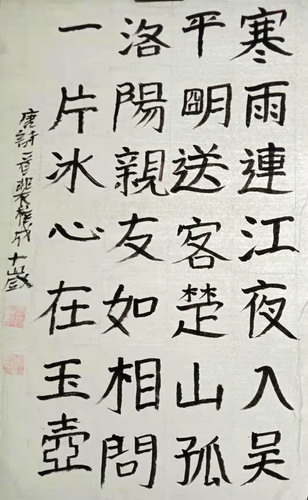 寒雨連江夜入吴
平明送客楚山孤
洛陽親友如相問
一片冰心在玉壺
唐詩一首 十歲